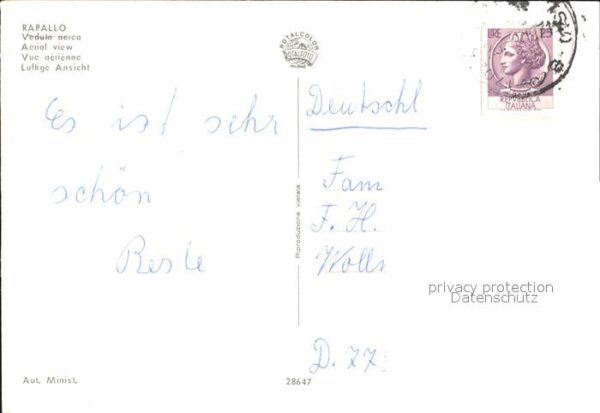 RAPALLO
Veduta aerea
Aerial view
Vue aérienne
Luftige Ansicht
ROTALCOLOR
ROTALFOTO
LIRE 25
REPVBBLICA
ITALIANA
Es ist sehr
schön
Deutschl
Fam
F. H.
Wolls
D. 77
Riproduzione vietata
privacy protection
Datenschutz
Aut. Minist.
28647